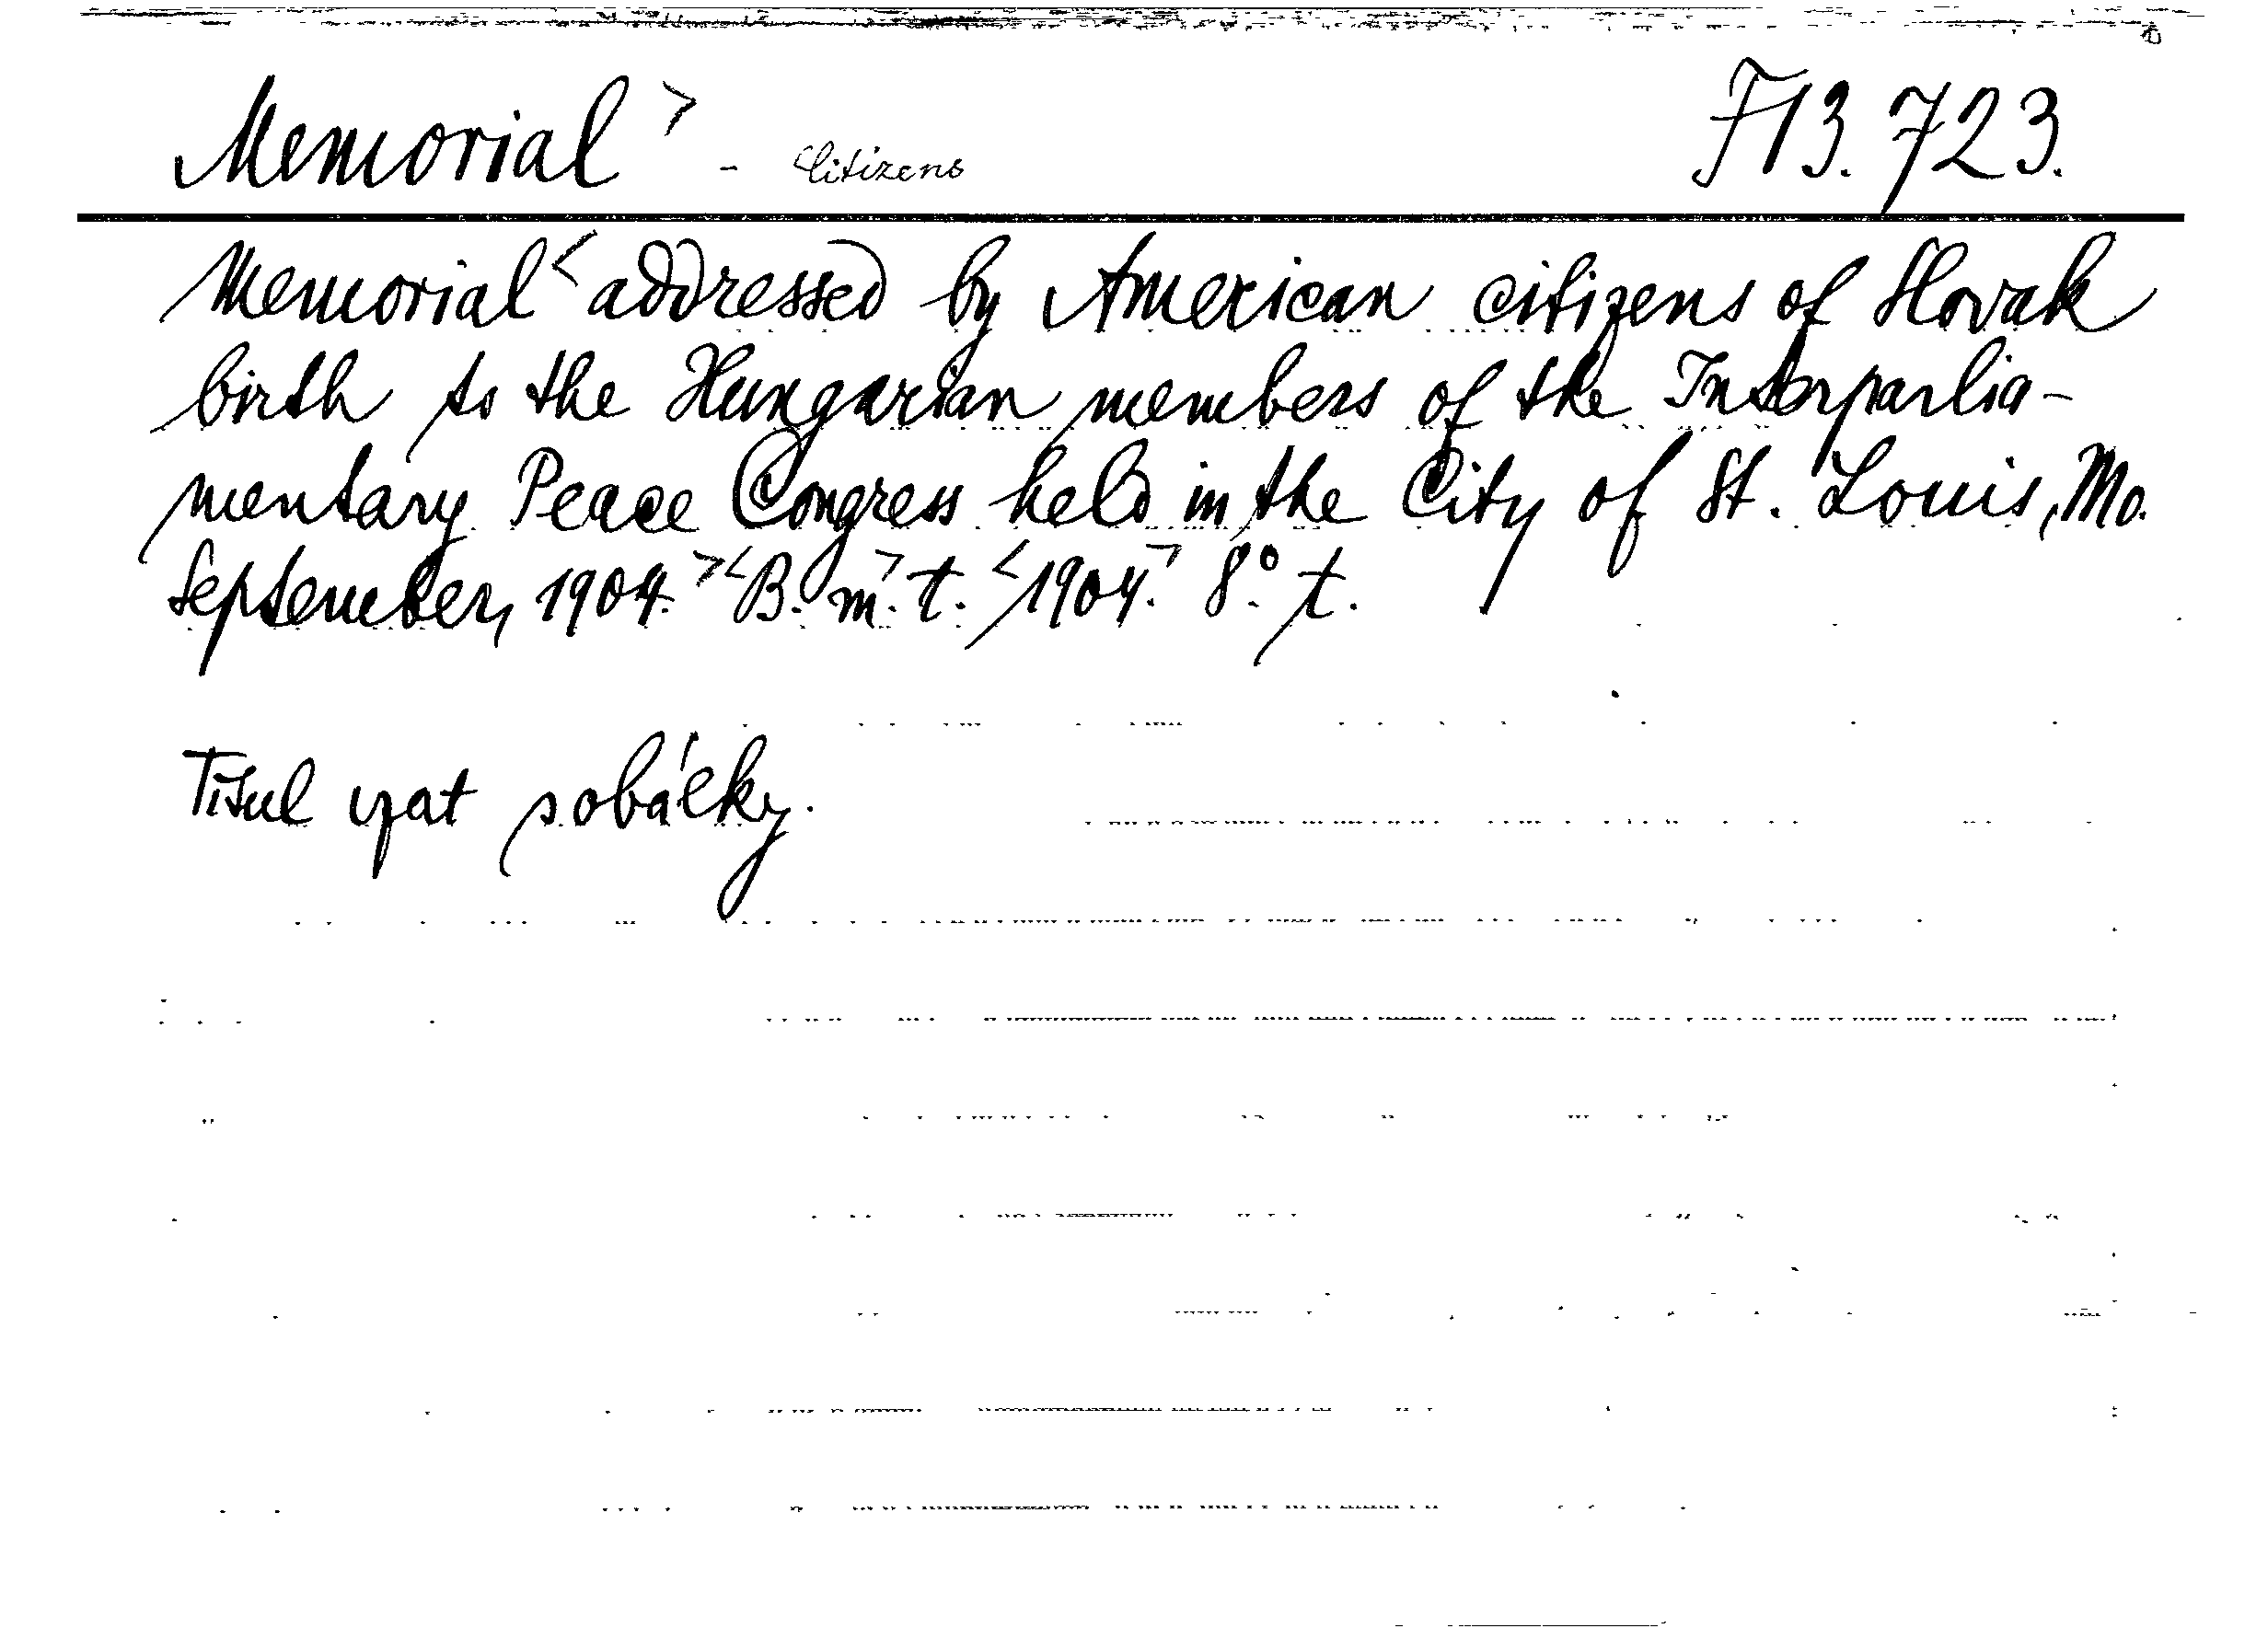 Memorial> - Citizens F13.723.
Memorial< addressed by American citizens of Slovak
birth to the Hungarian members of the Interparlia-
mentary Peace Congress held in the City of St. Louis, Mo.
September, 1904.> <B. m.> t. <1904.> 8.° t.
Titul vzat s obálky.